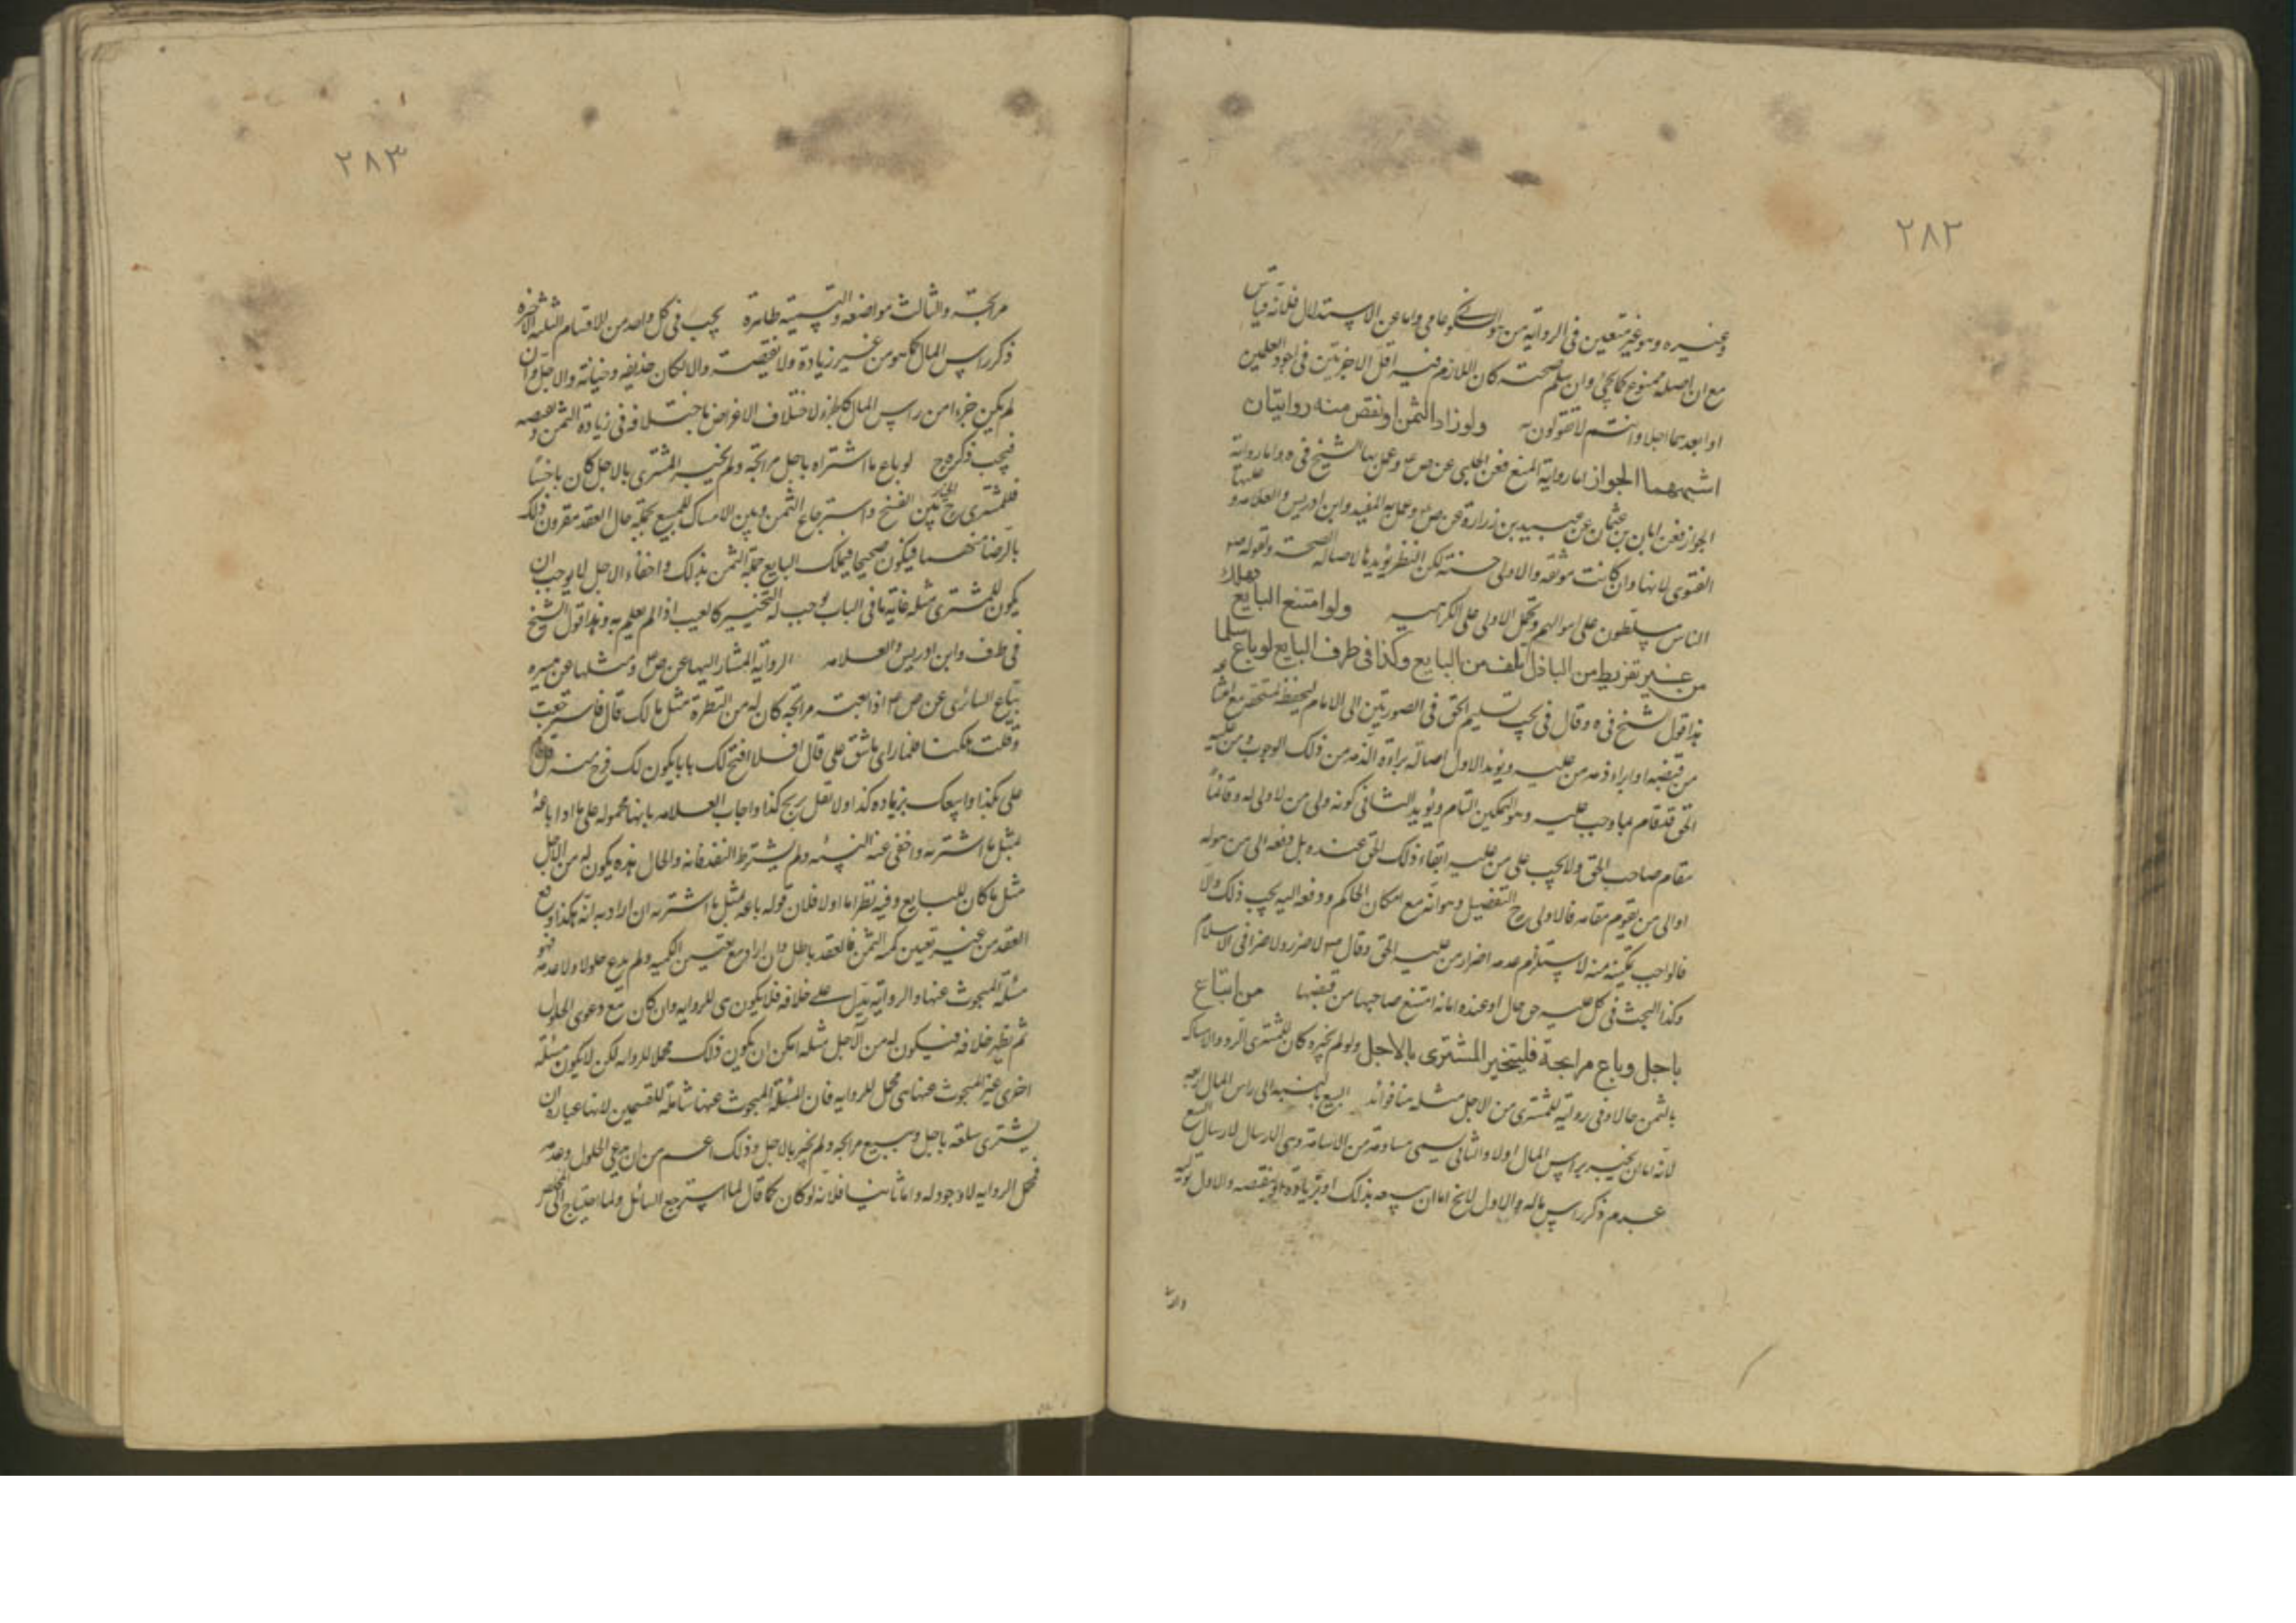 ٢٨٢
وغيره وهو غير متعين في الرواية من هو السكوني عامي واما عن الاستدلال فلانه قياس
مع ان اصله ممنوع كما يجئ وان سلم صحته كان اللازم فيه اقل الاجزيتين في اجود العلمين
او ابعدهما اجلا وانتم لا تقولون به ولو زاد الثمن او نقص منه روايتان
اشبههما الجواز اما رواية المنع فعن الحلبي عن ص ع وعمل بها الشيخ في ه واما رواية
الجواز فعن ابان بن عثمان عن عبيد بن زرارة عن ص وعمل به المفيد وابن ادريس والعلامه و عليها
الفتوى لانها وان كانت موثقه والاولى حسنة لكن النظر يؤيدها لاصالة الصحة ولقوله ص
الناس مسلطون على اموالهم وتحمل الاولى على الكراهية ولو امتنع البايع فهلك
من غير تفريط من الباذل تلف من البايع وكذا في طرف البايع لو باع سلما
هذا قول الشيخ في ه وقال في يجب تسليم الحق في الصورتين الى الامام ليحفظ لمستحقه مع امتناعه
من قبضه او ابراء ذمه من عليه ويؤيد الاول اصالة براءة الذمه من ذلك الوجوب ومن عليه
الحق قد قام بما وجب عليه وهو التمكين التام ويؤيد الثاني كونه ولى من لا ولى له وقائما
مقام صاحب الحق ولا يجب على من عليه ابقاء ذلك الحق عنده بل دفعه الى من هو له
او الى من يقوم مقامه فالاولى ح التفصيل وهو انه مع امكان الحاكم ودفعه اليه يجب ذلك والا
فالواجب تمكينه منه لاستلزم عدمه اضرار من عليه الحق وقال ص لا ضرر ولا ضرار في الاسلام
وكذا البحث في كل عليه حق حال او عنده امانة امتنع صاحبها من قبضها من ابتاع
باجل وباع مرابحة فليتخير المشترى بالاجل ولو لم يخبره كان للمشترى الرد والامساك
بالثمن حالا وفي رواية للمشترى من الاجل مثله منا فوائد البيع بالنسبه الى راس المال اربعه
لانه اما ان يخبر براس المال اولا والثاني يسمى مساومة من الاسامة وهي الارسال لارسال البيع
عدم ذكر راس ماله والاول لا يخ اما ان يبيعه بذلك او بزيادة او بنقيصه والاول تولية
والثا
٢٨٣
مرابحة والثالث مواضعه والتسمية ظاهرة يجب في كل واحد من الاقسام الثلثه الاخيرة
ذكر راس المال كما هو من غير زيادة ولا نقيصة والا لكان خديعه وخيانة والاجل وان
لم يكن جزءا من راس المال كالجزء لاختلاف الاغراض باختلافه في زيادة الثمن ونقصه
فيجب ذكره ح لو باع ما اشتراه باجل مرابحة ولم يخبر المشترى بالاجل كان باخسا
فللمشترى ح الخيار بين الفسخ واسترجاع الثمن وبين الامساك للمبيع بجملة حال العقد مقرون ذلك
بالرضا منهما فيكون صحيحا فيملك البايع جملة الثمن بذلك واخفاء الاجل لا يوجب ان
يكون للمشترى مثله غاية ما في الباب يوجب له التخيير كالعيب اذا لم يعلم به وهذا قول الشيخ
في طف وابن ادريس والعلامه الرواية المشار اليها عن ص ع ومثلها عن ميسره
بياع السائرى عن ص ع اذا بعته مرابحة كان له من النظرة مثل مالك قال فاسترجعت
وقلت هلكنا فلما راى ما شق على قال افلا افتح لك بابا يكون لك فرج منه قال قام
على بكذا وابيعك بزيادة كذا ولا تقل بربح كذا واجاب العلامه بانها محموله على ما اذا باعه
بمثل ما اشتراه واخفى عنه النسيئه ولم يشترط النقد فانه والحال هذه يكون له من الاجل
مثل ما كان للبايع وفيه نظر اما اولا فلان قوله باعه بمثل ما اشتراه ان اراد به انه هكذا وقع
العقد من غير تعيين كمية الثمن فالعقد باطل وان اراد مع تعيين الكميه ولم يدع حلولا ولا عدمه فهو
مسئلة المبحوث عنها والرواية تدل على خلافه فلا يكون ى للروايه وان كان مع دعوى الحلول
ثم تظهر خلافه فيكون له من الاجل مثله امكن ان يكون ذلك محملا للروايه لكن لا يكون مسئلة
اخرى غير المبحوث عنها هي محل للروايه فان المسئلة المبحوث عنها شاملة للقسمين لانها عباره ان
يشترى سلعة باجل ويبيع مرابحه ولم يخبر بالاجل وذلك اعم من ان يدعى الحلول وعدمه
فمحل الروايه لا وجود له واما ثانيا فلانه لو كان كما قال لما استرجع السائل ولما احتاج الى المخلص